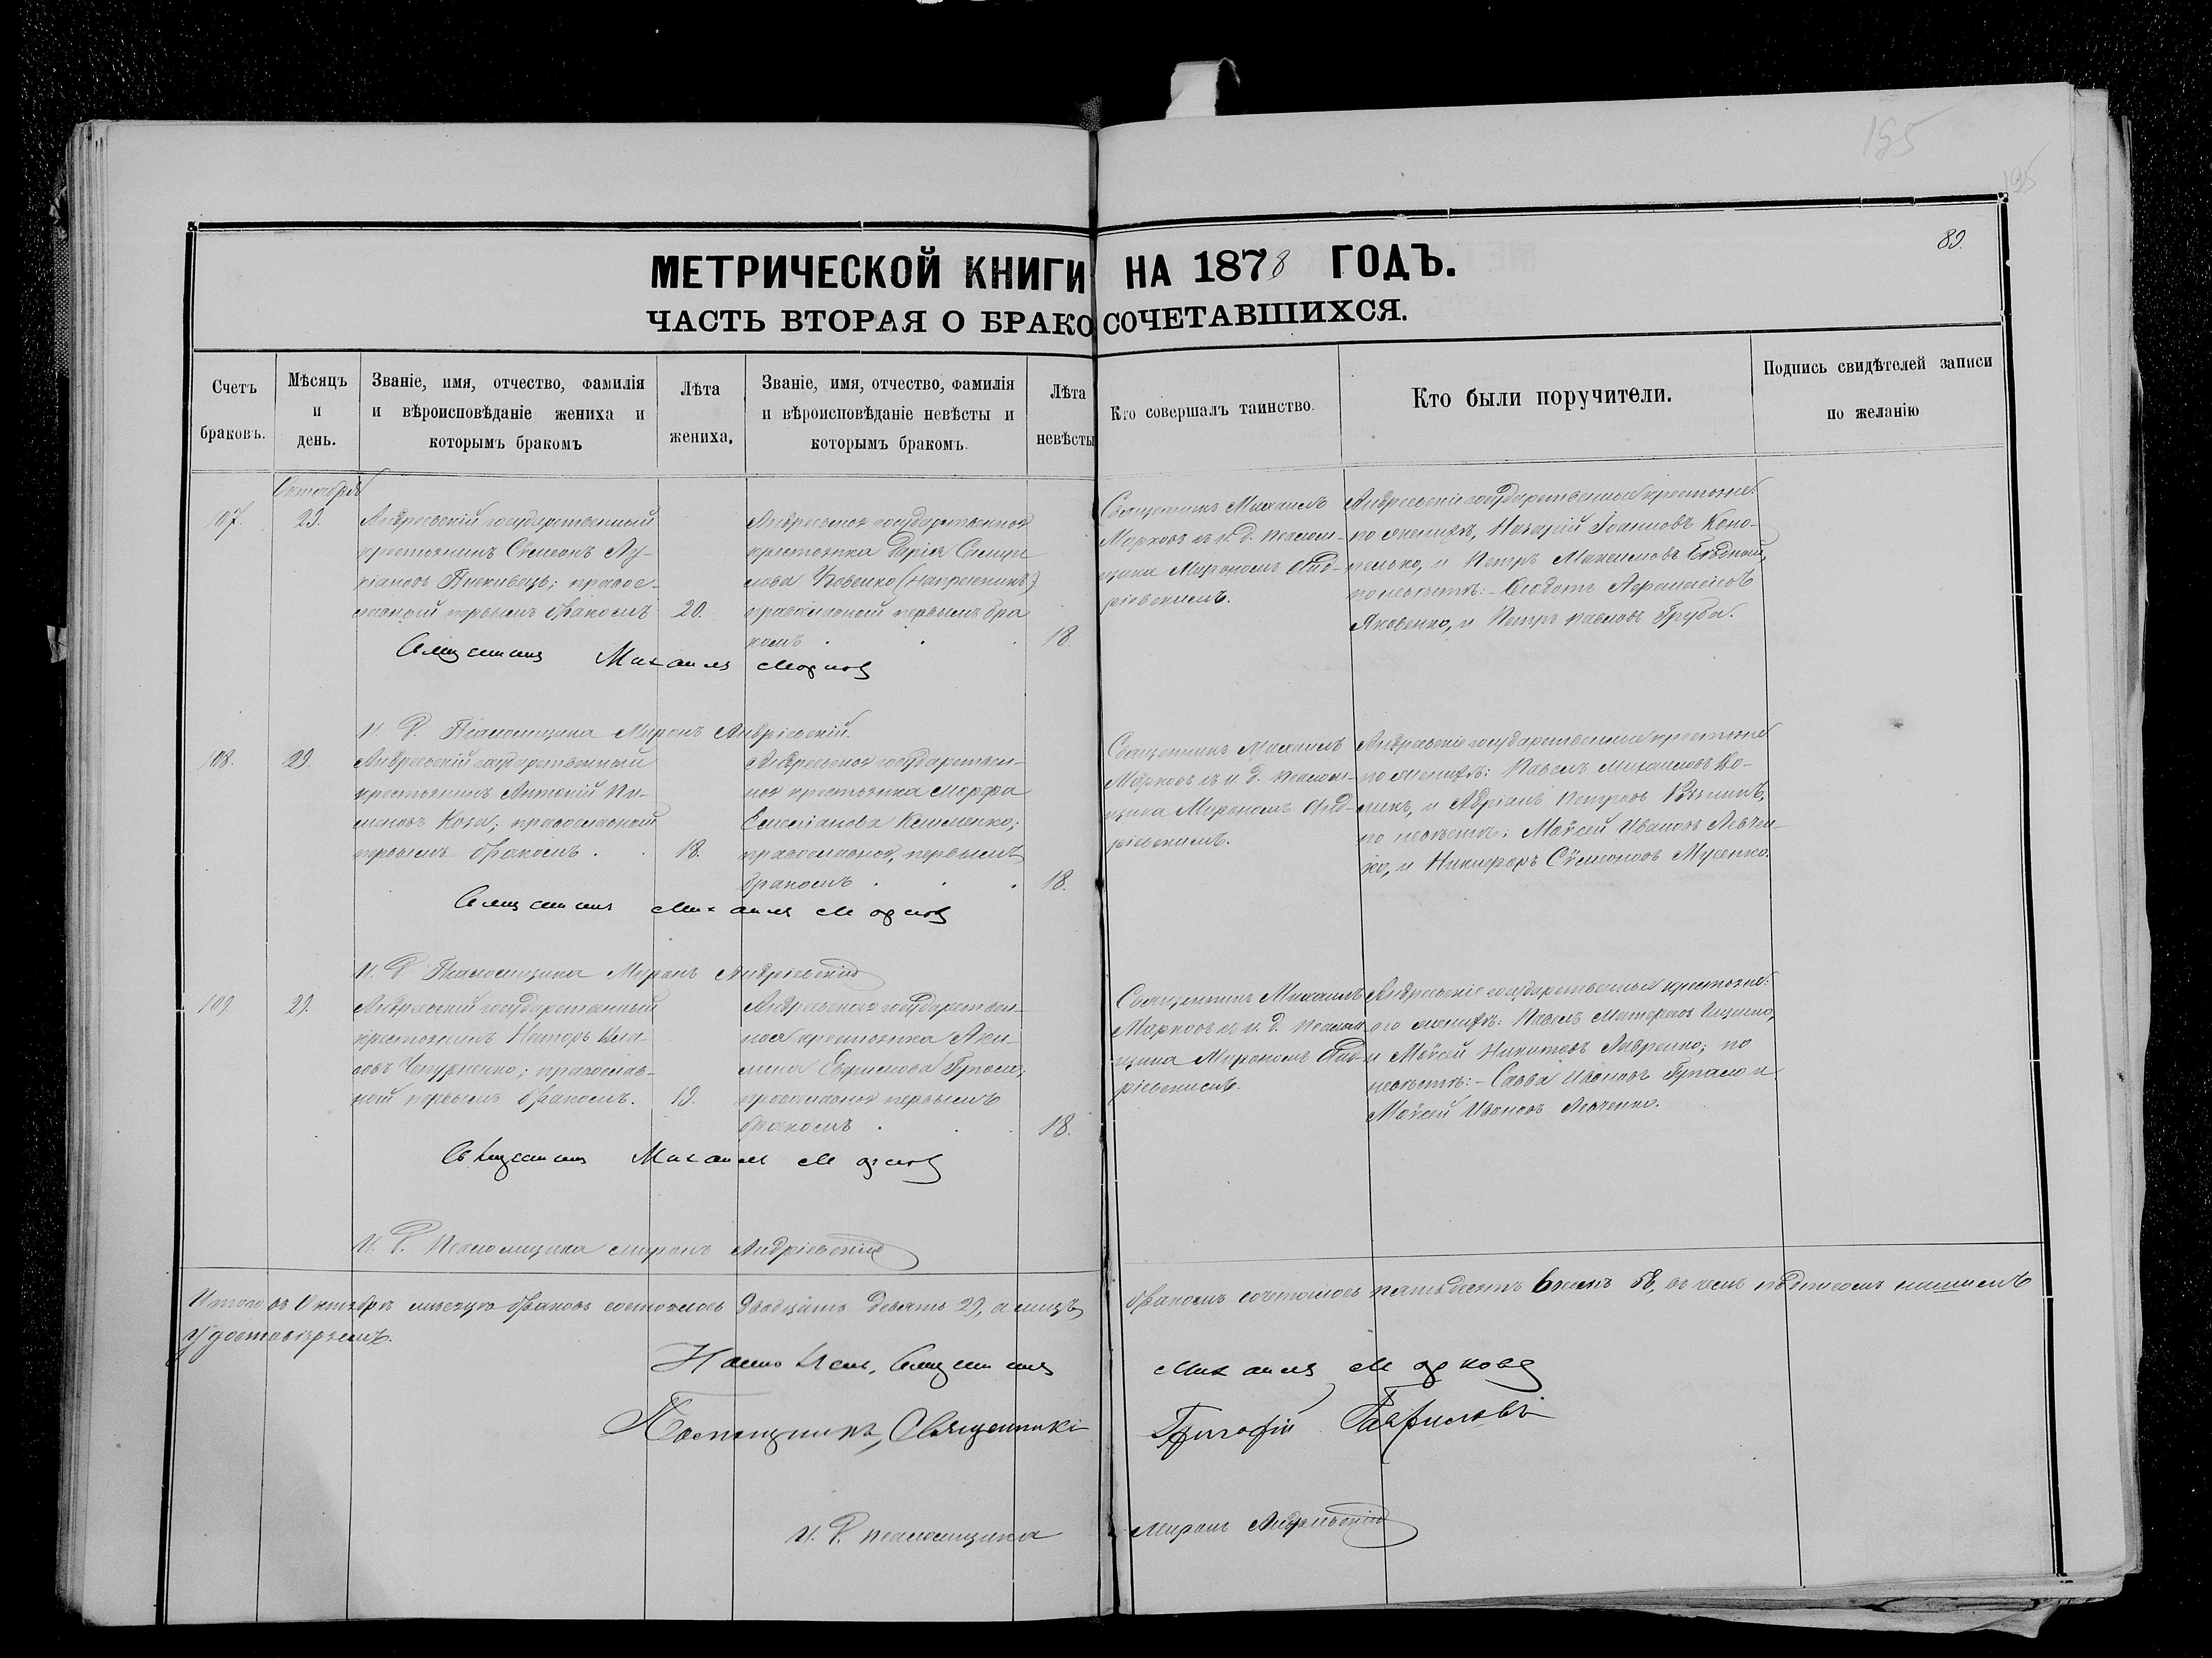 195
195
89.
МЕТРИЧЕСКОЙ КНИГИ НА 1878 ГОДЪ.
ЧАСТЬ ВТОРАЯ О БРАКОСОЧЕТАВШИХСЯ.
Счетъ браковъ.
Мѣсяцъ и день.
Званіе, имя, отчество, фамилія
и вѣроисповѣданіе жениха и
которымъ бракомъ
Лѣта жениха.
Званіе, имя, отчество, фамилія
и вѣроисповѣданіе невѣсты и
которымъ бракомъ.
Лѣта невѣсты
Кто совершалъ таинство.
Кто были поручители.
Подпись свидѣтелей записи
по желанію
Октября
107.
29.
Андреевскій государственный
крестьянинъ Сѵмеонъ Лу-
кіановъ; правос-
лавный первымъ бракомъ
20.
Андреевская государственная
крестьянка Дарія
православной первымъ бра
комъ
18.
Священникъ Михаилъ
Марковъ съ и. д. псалом-
щика Мирономъ Анд-
ріевскимъ.
Андреевскіе государственные крестьяне:
по женихѣ, Назарій Іоанновъ Коно-
пелько, и Петръ Максимовъ
по невѣстѣ:- Ѳеодотъ Аѳанасіевъ
Яковенко, и Петръ Павловъ Груба.
Священникъ Михаилъ Марковъ
И. Д. Псаломщика Миронъ Андріевскій.
108.
29.
Андреевскій государственный
крестьянинъ Антоній Пи-
меновъ Коза; православный
первымъ бракомъ.
18.
Андреевская государствен-
ная крестьянка Марфа
Емеліанова Клименко;
православная, первымъ
бракомъ
18.
Священникъ Михаилъ
Марковъ съ и. д. псалом-
щика Мирономъ Анд-
ріевскимъ.
Андреевскіе государственные крестьяне
по женихѣ: Павелъ Михаиловъ
и Адріанъ Петровъ
по невѣстѣ: Моѵсей Ивановъ Левчен-
ко, и Никифоръ Сѵмеоновъ Мусенко.
Священникъ Михаилъ Марковъ
И. Д. Псаломщика Миронъ Андріевскій
109.
29.
Андреевскій государственный
крестьянинъ Несторъ
Чепурненко; православ-
ный первымъ бракомъ.
19.
Андреевская государствен-
ная крестьянка Аки-
лина Ефимова Гупало;
православная первымъ
бракомъ
18.
Священникъ Михаилъ
Марковъ съ и. д. псалом
щика Мирономъ Анд-
ріевскимъ.
Андреевскіе государственные крестьяне:
по женихѣ: Павелъ Матѳеевъ Ищенко,
и Моѵсей Никитовъ Лавренко; по
невѣстѣ:- Савва Ивановъ Гупало и
Моѵсей Ивановъ Левченко.
Священникъ Михаилъ Марковъ
И. Д. Псаломщика Миронъ Андріевскій
Итого въ Октябрѣ мѣсяцѣ браковъ состоялось двадцать девять 29, а лицъ бракомъ сочеталось пятьдесятъ восемь 58, въ чемъ подписомъ нашимъ
удостовѣряемъ.
Настоятель, Священникъ Михаилъ Марковъ
Помощникъ, Священникъ Григорій Гавриловъ
И. Д. псаломщика Миронъ Андріевскій